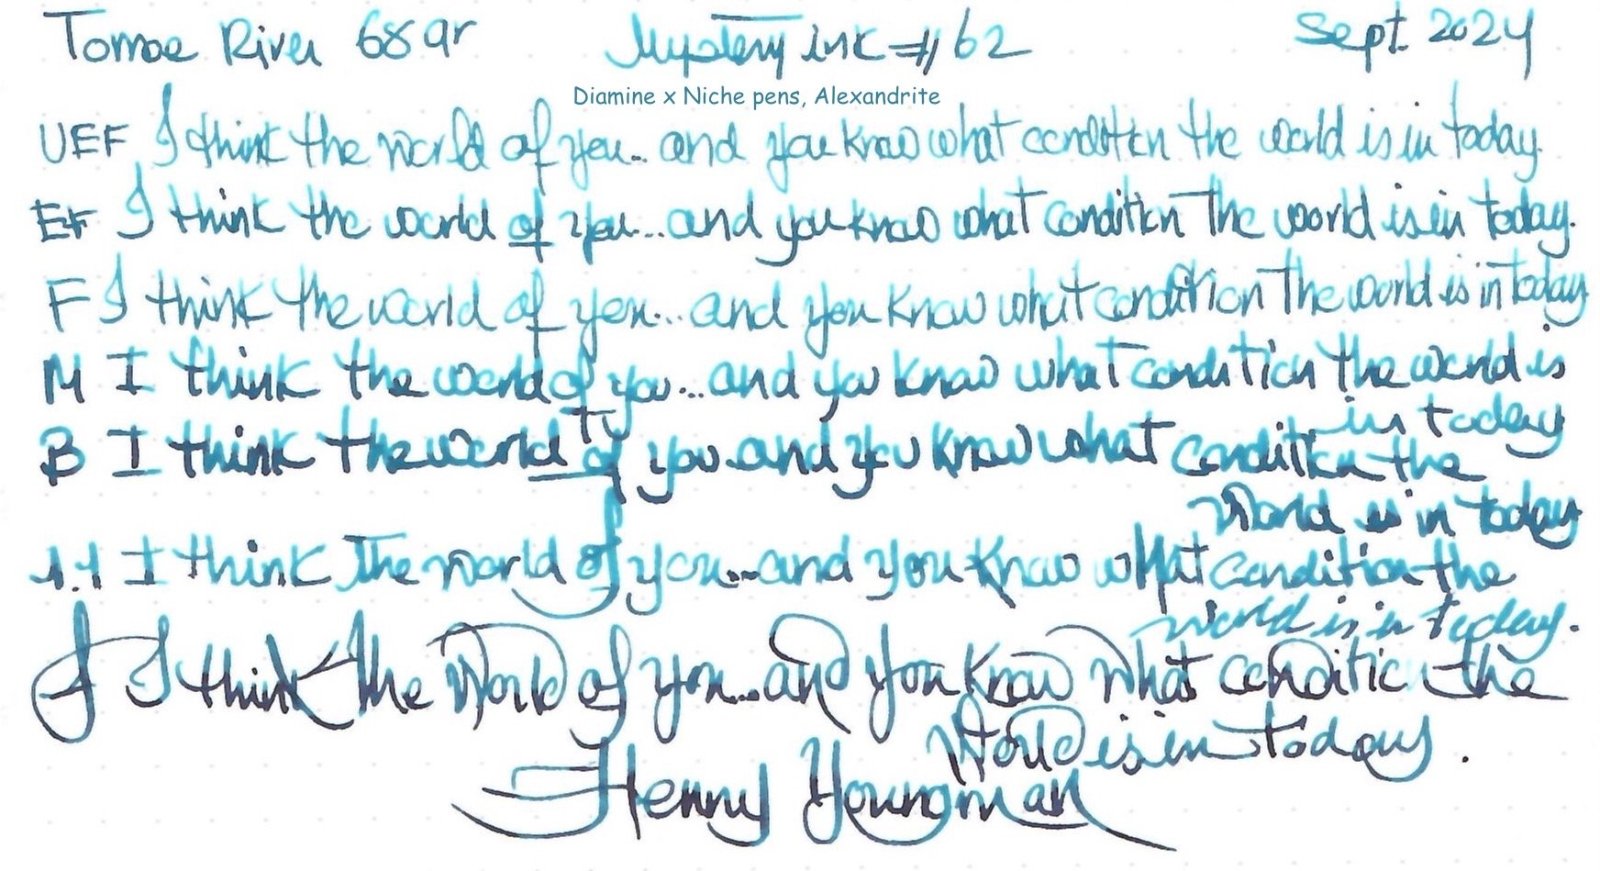 Tomoe River 68 gr Mystery ink #62 Sept 2024
Diamine x Niche pens, Alexandrite
UEF I think the world of you... and you know what condition the world is in today.
EF I think the world of you... and you know what condition the world is in today.
F I think the world of you... and you know what condition the world is in today
M I think the world of you... and you know what condition the world is
in today
B I think the world of you and you know what condition the
world is in today
1.1 I think the world of you... and you know what condition the
world is in today.
I think the world of you... and you know what condition the
world is in today.
Henny Youngman